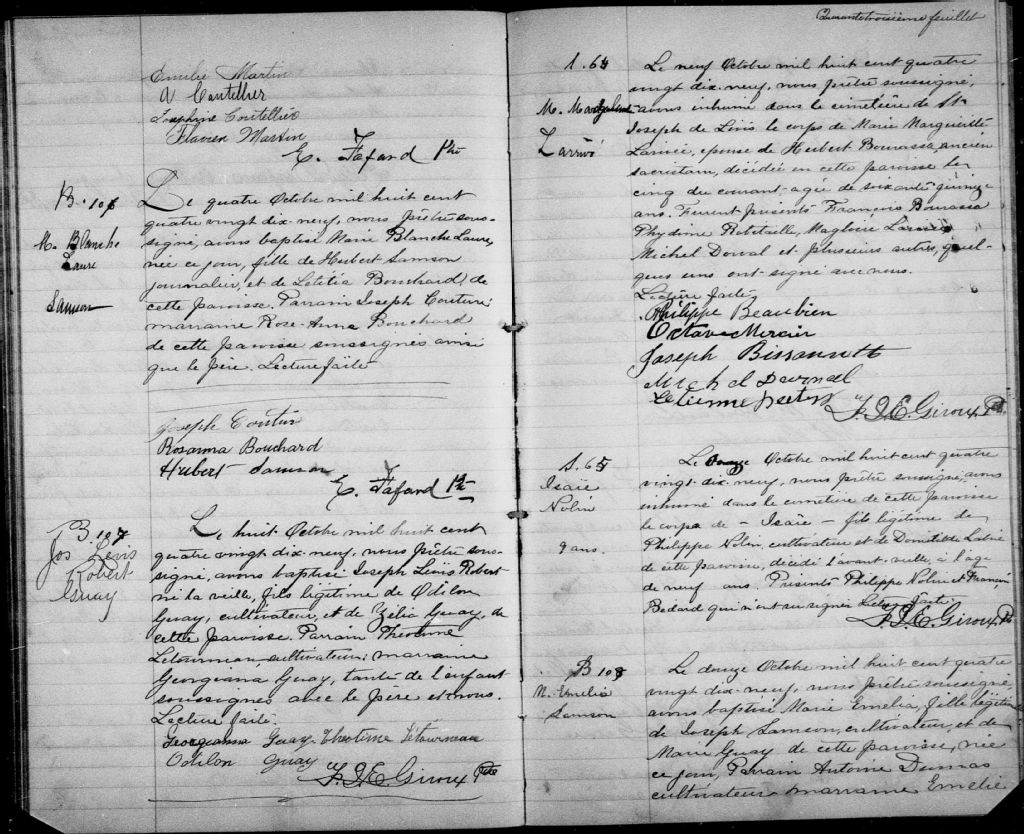 Emelie Martin
A Coutellier
Josephine Coutellier
Flavien Martin
E. Fafard Ptre
B. 106
M. Blanche
Laure
Samson
Le quatre Octobre mil huit cent
quatre vingt dix-neuf, nous prêtre sous-
signé, avons baptisé Marie Blanche Laure,
née ce jour, fille de Hubert Samson
journalier, et de Létitia Bouchard, de
cette paroisse. Parrain Joseph Couture;
marraine Rose-Anna Bouchard
de cette paroisse soussignés ainsi
que le père. Lecture faite
Joseph Coutur
Rosanna Bouchard
Hubert Samson
E. Fafard Ptre
B. 107
Jos Levis
Robert
Guay
Le huit Octobre mil huit cent
quatre vingt dix-neuf, nous prêtre sous-
signé, avons baptisé Joseph Levis Robert
né la veille, fils légitime de Odilon
Guay, cultivateur, et de Zélia Guay, de
cette paroisse. Parrain Theotime
Letourneau, cultivateur; marraine
Georgeana Guay, tante de l'enfant
soussignés avec le père et nous.
Lecture faite.
Georgeanna Guay Theotime Létourneau
Odilon Guay
F. X. E. Giroux Ptre
Quarante troisième feuillet
S. 64
M. Marguerite
Larrivé
Le neuf Octobre mil huit cent quatre
vingt dix-neuf, nous prêtre soussigné,
avons inhumé dans le cimetière de St-
Joseph de Lévis le corps de Marie Marguerite
Larivée, epouse de Hubert Bourassa, ancien
sacristain, décédée en cette paroisse le
cinq du courant agée de soixante quinze
ans. Furent présents François Bourassa
Phydime Robitaille, Magloire Larivée
Michel Dorval et plusieurs autres, quel-
ques uns ont signé avec nous.
Lecture faite,
Philippe Beaubien
Octave Mercier
Joseph Bissonnette
Michel Dorval
Etienne
F. X. E. Giroux Ptr.
S. 65
Isaïe
Nolin
9 ans.
Le douze Octobre mil huit cent quatre
vingt-dix-neuf, nous prêtre soussigné, avons
inhumé dans le cimetière de cette paroisse
le corps de - Isaïe - fils légitime de
Philippe Nolin, cultivateur et de Domitilde Labrie
de cette paroisse, décédé l'avant-veille, à l'age
de neuf ans. Présents Philippe Nolin et François
Bedard qui n'ont su signer. Lecture faite.
F. X. E. Giroux, Pt
B 108
M. Emelie
Samson
Le douze Octobre mil huit cent quatre
vingt-dix-neuf, nous prêtre soussigné
avons baptisé Marie Emelia, fille légitime
de Joseph Samson, cultivateur, et de
Marie Guay de cette paroisse, née
ce jour, Parrain Antoine Dumas
cultivateur marraine Emelie